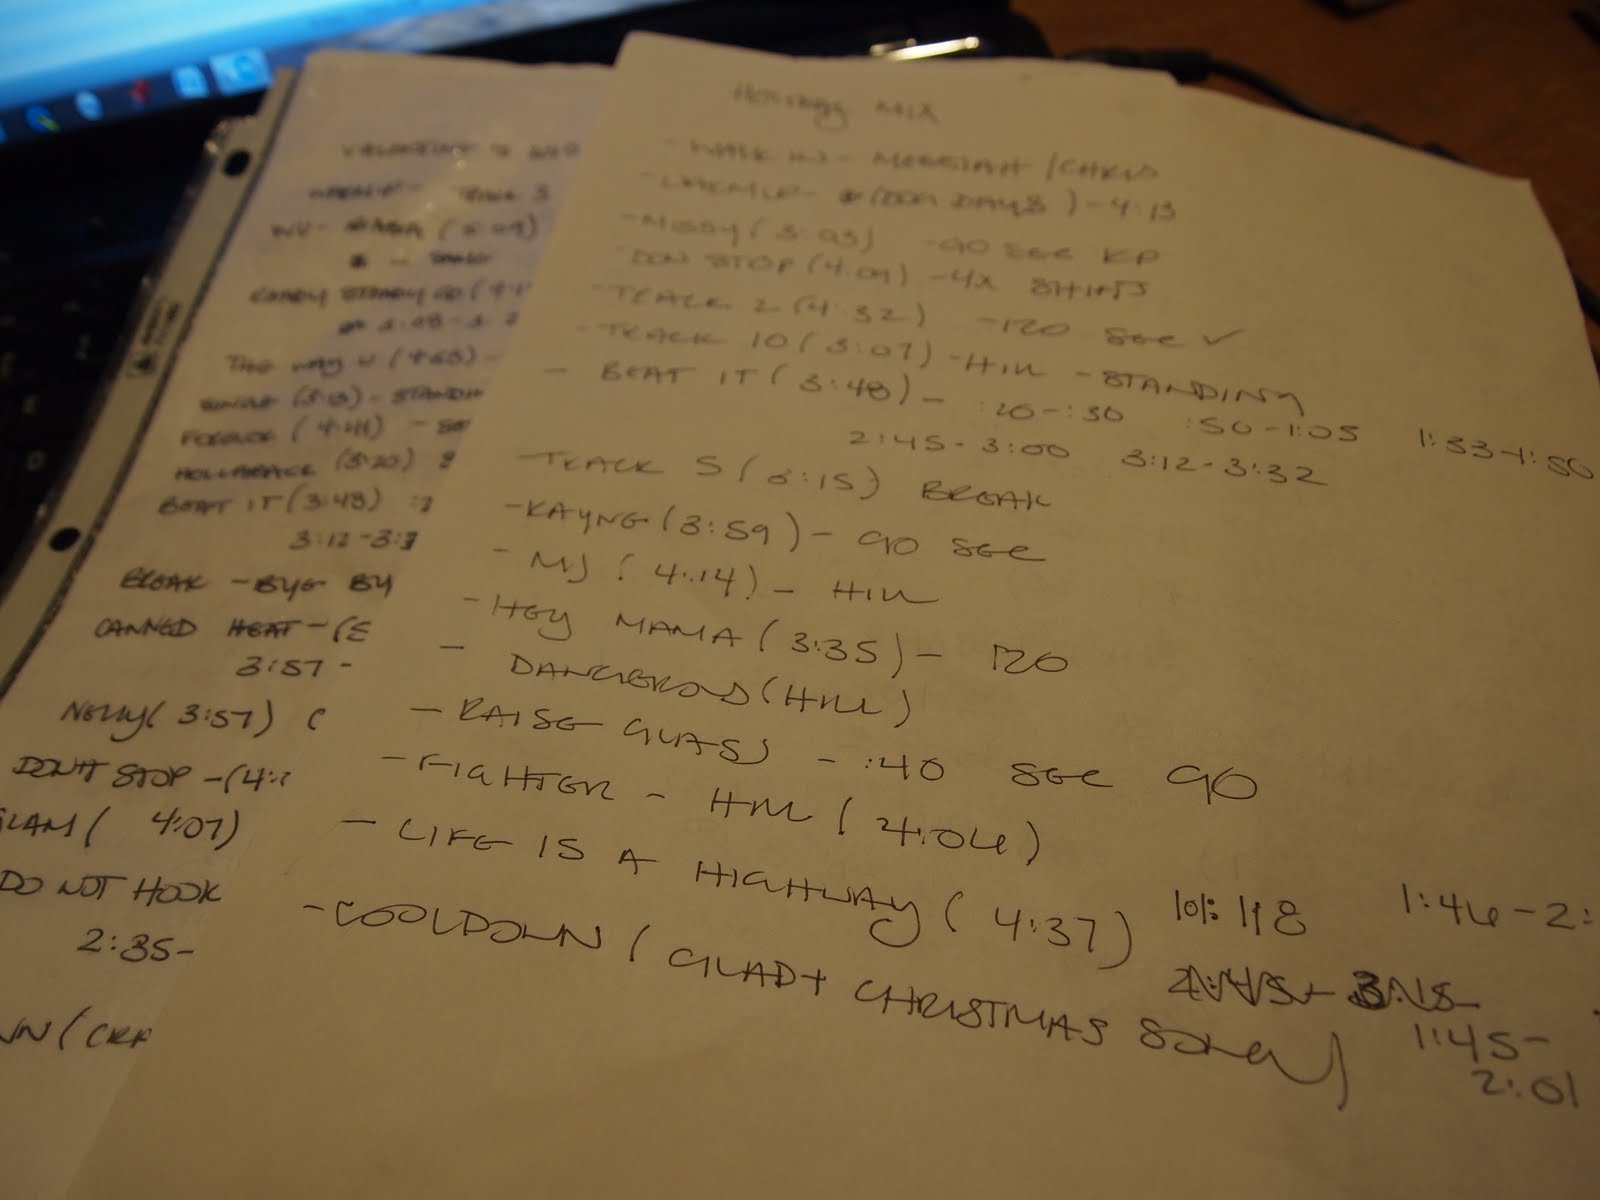 HOLIDAY MIX
- WALK IN - MESSIAH / CHRIS
- WARMUP - (DOG DAYS) - 4:13
- MISSY (3:03) - 90 SEC KP
DON STOP (4:09) - 4X SHIFTS
- TRACK 2 (4:32) - 120 SEC ✓
- TRACK 10 (3:07) - HILL - STANDING
- BEAT IT (3:48) - :20-:30 :50-1:05 1:33-1:50
2:45-3:00 3:12-3:32
- TRACK 5 (3:15) BREAK
- KAYNE (3:59) - 90 SEC
- MJ (4:14) - HILL
- HEY MAMA (3:35) - 120
- DANGEROUS (HILL)
- RAISE GLASS - :40 SEC 90
- FIGHTER - HILL (4:04)
- LIFE IS A HIGHWAY (4:37) 1:18 1:46-2:
1:45-
2:01
- COOLDOWN (GLAD + CHRISTMAS SONG)
VALENTINE'S
WARMUP - TRACK 3
GAGA
THE WAY U
SINGLE (3:13) - STANDIN
HOLLABACK (3:20)
BEAT IT (3:48)
3:12-3:3
BREAK - BYE BY
CANNED HEAT - (
3:57 -
NELLY (3:57)
DON'T STOP - (4:
GLAM (4:07)
DO NOT HOOK
2:35-
WN (CRA